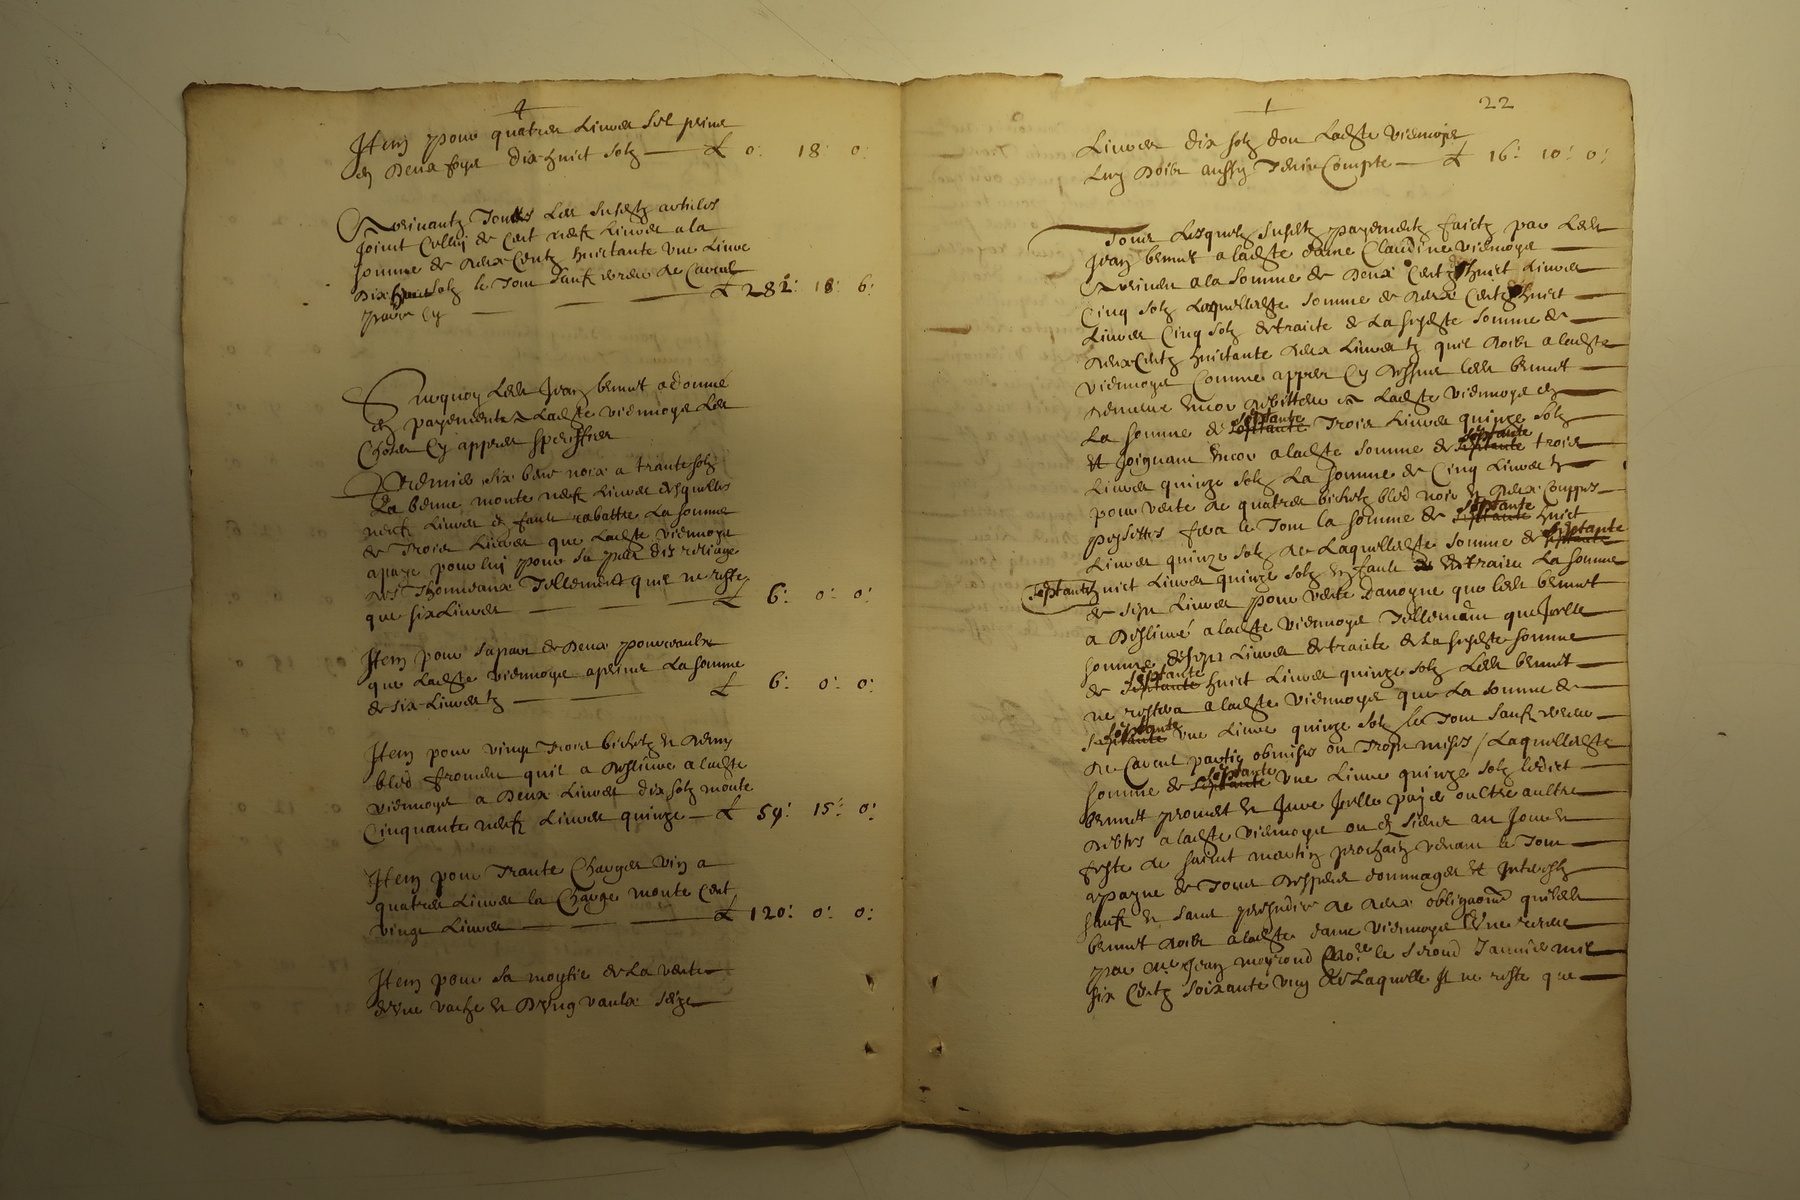 4
Item pour quatres Livres sel prins
en deux foys dix huict solz — £ 0: 18: 0:
Arrivantz Toutes Les susdtz articles
joinct Celluy de Cent neufz Livres a la
somme de deux Centz huictante une Livre
dix huict solz le Tout sauf erreur de Carcul
pour Cy — — — £ 281: 18: 6:
Surquoy Ledt Jean bennet a donne
en payements a Ladte viennoys Les
Choses Cy appres speciffies
Premier six benes noix a trante solz
La benne monte neufz Livres desquelles
neufz Livres en fault rabattre La somme
de Trois Livres que Ladte viennoys
a paye pour luy pour sa part
des Tellement quil ne reste
que six Livres — — £ 6: 0: 0:
Item pour sa part de Deux pourceaulx
que Ladte viennoys a prins La somme
de six Livres tz — — £ 6: 0: 0:
Item pour vingt Trois bichetz et demy
bled froment quil a deslivre a ladte
viennoys a Deux Livres dix solz monte
Cinquante neufz Livres quinze — £ 59: 15: 0:
Item pour Trante Charges vin a
quatres Livres la Charge monte Cent
vingt Livres — — £ 120: 0: 0:
Item pour sa moytie de La vente
d'une vache et d'ung vaulx seize
1
22
Livres dix solz dou Ladte viennoys
Luy doibt aussy Tenir Compte — £ 16: 10: 0:
Tous Lesquelz susdtz payementz faictz par Ledt
Jean bennet a ladte dame Claudine viennoys
Arrivent a la somme de Deux Centz huict Livres
Cinq solz Laquelledte somme de deux Centz huict
Livres Cinq solz detraicte de La susdte somme de
deux Centz huictante deux Livres tz quil doibt a ladte
viennoys Comme appres Cy dessus ledt bennet
demeure encor debitteur a Ladte viennoys en
La somme de septante Trois Livres quinze solz
Et joignant encor a ladte somme de septante trois
Livres quinze solz La somme de Cinq Livres tz
pour vente de quatres bichetz bled noir et deux Couppes
pesettes fera le Tout la somme de septante huict
Livres quinze solz de Laquelledte somme de septante
septante huict Livres quinze solz en fault detraire La somme
de sept Livres pour vente d'avoyne que ledt bennet
a Deslivré a ladte viennoys Tellement que Jcelle
somme de sept Livres detraicte de La susdte somme
de septante huict Livres quinze solz Ledt bennet
ne restera a ladte viennoys que La somme de
septante une Livre quinze solz le Tout sauf erreur
de Carcul partie obmises ou Trop mises / Laquelledte
somme de septante une Livre quinze solz ledict
bennet promet et Jure Jcelle payer oultre aultre
debtes a ladte viennoys ou es siens au Jour et
feste de sainct martin prochain venant le Tout
a payne de Tous despens dommages Et Interestz
sauf et sans prejudice de deux obligaons que ledt
bennet doibt a ladte dame viennoys L'une receue
par me Jean le second Janvier mil
six Centz soixante ving de Laquelle Il ne reste que